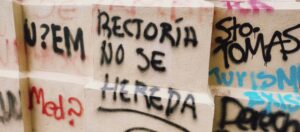 U?EM
Med?
RECTORÍA
NO SE
HEREDA
Sto.
TOMAS
TURISM
Derecho